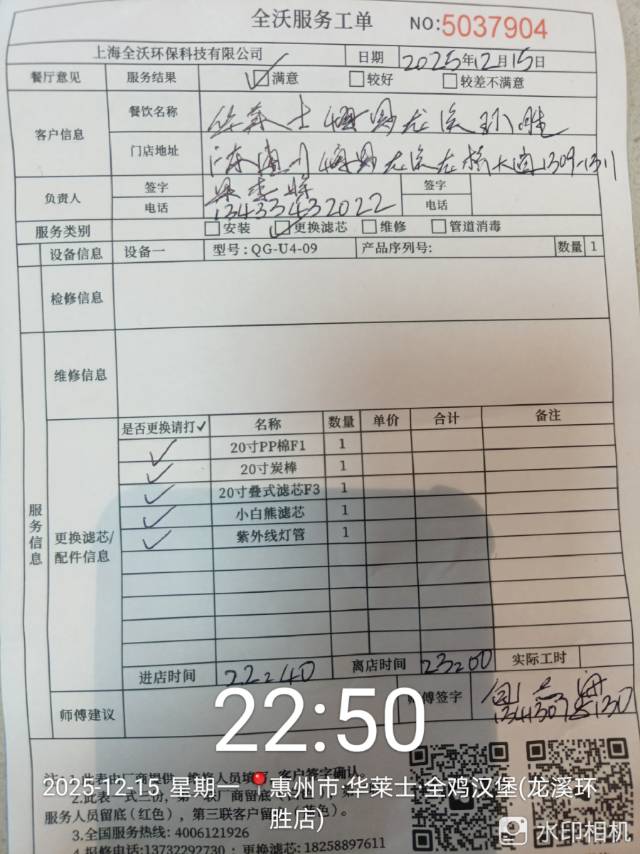 全沃服务工单 NO:5037904
上海全沃环保科技有限公司 日期 2025年12月15日
餐厅意见 服务结果 满意 较好 较差不满意
客户信息 餐饮名称 华莱士
门店地址 1309-1311
负责人 签字 签字
电话 13433432022 电话
服务类别 安装 更换滤芯 维修 管道消毒
设备信息 设备一 型号:QG-U4-09 产品序列号: 数量 1
检修信息
服务信息
维修信息
更换滤芯/配件信息
是否更换请打✓ 名称 数量 单价 合计 备注
✓ 20寸PP棉F1 1
✓ 20寸炭棒 1
✓ 20寸叠式滤芯F3 1
✓ 小白熊滤芯 1
✓ 紫外线灯管 1
进店时间 22:40 离店时间 23:00 实际工时
师傅建议 师傅签字
22:50
2025-12-15 星期一 惠州市·华莱士·全鸡汉堡(龙溪环
胜店)
客户签字确认
服务人员留底(红色),第三联客户留
3.全国服务热线: 4006121926
4.报修电话:13732292730 更换滤芯: 18258897611
水印相机